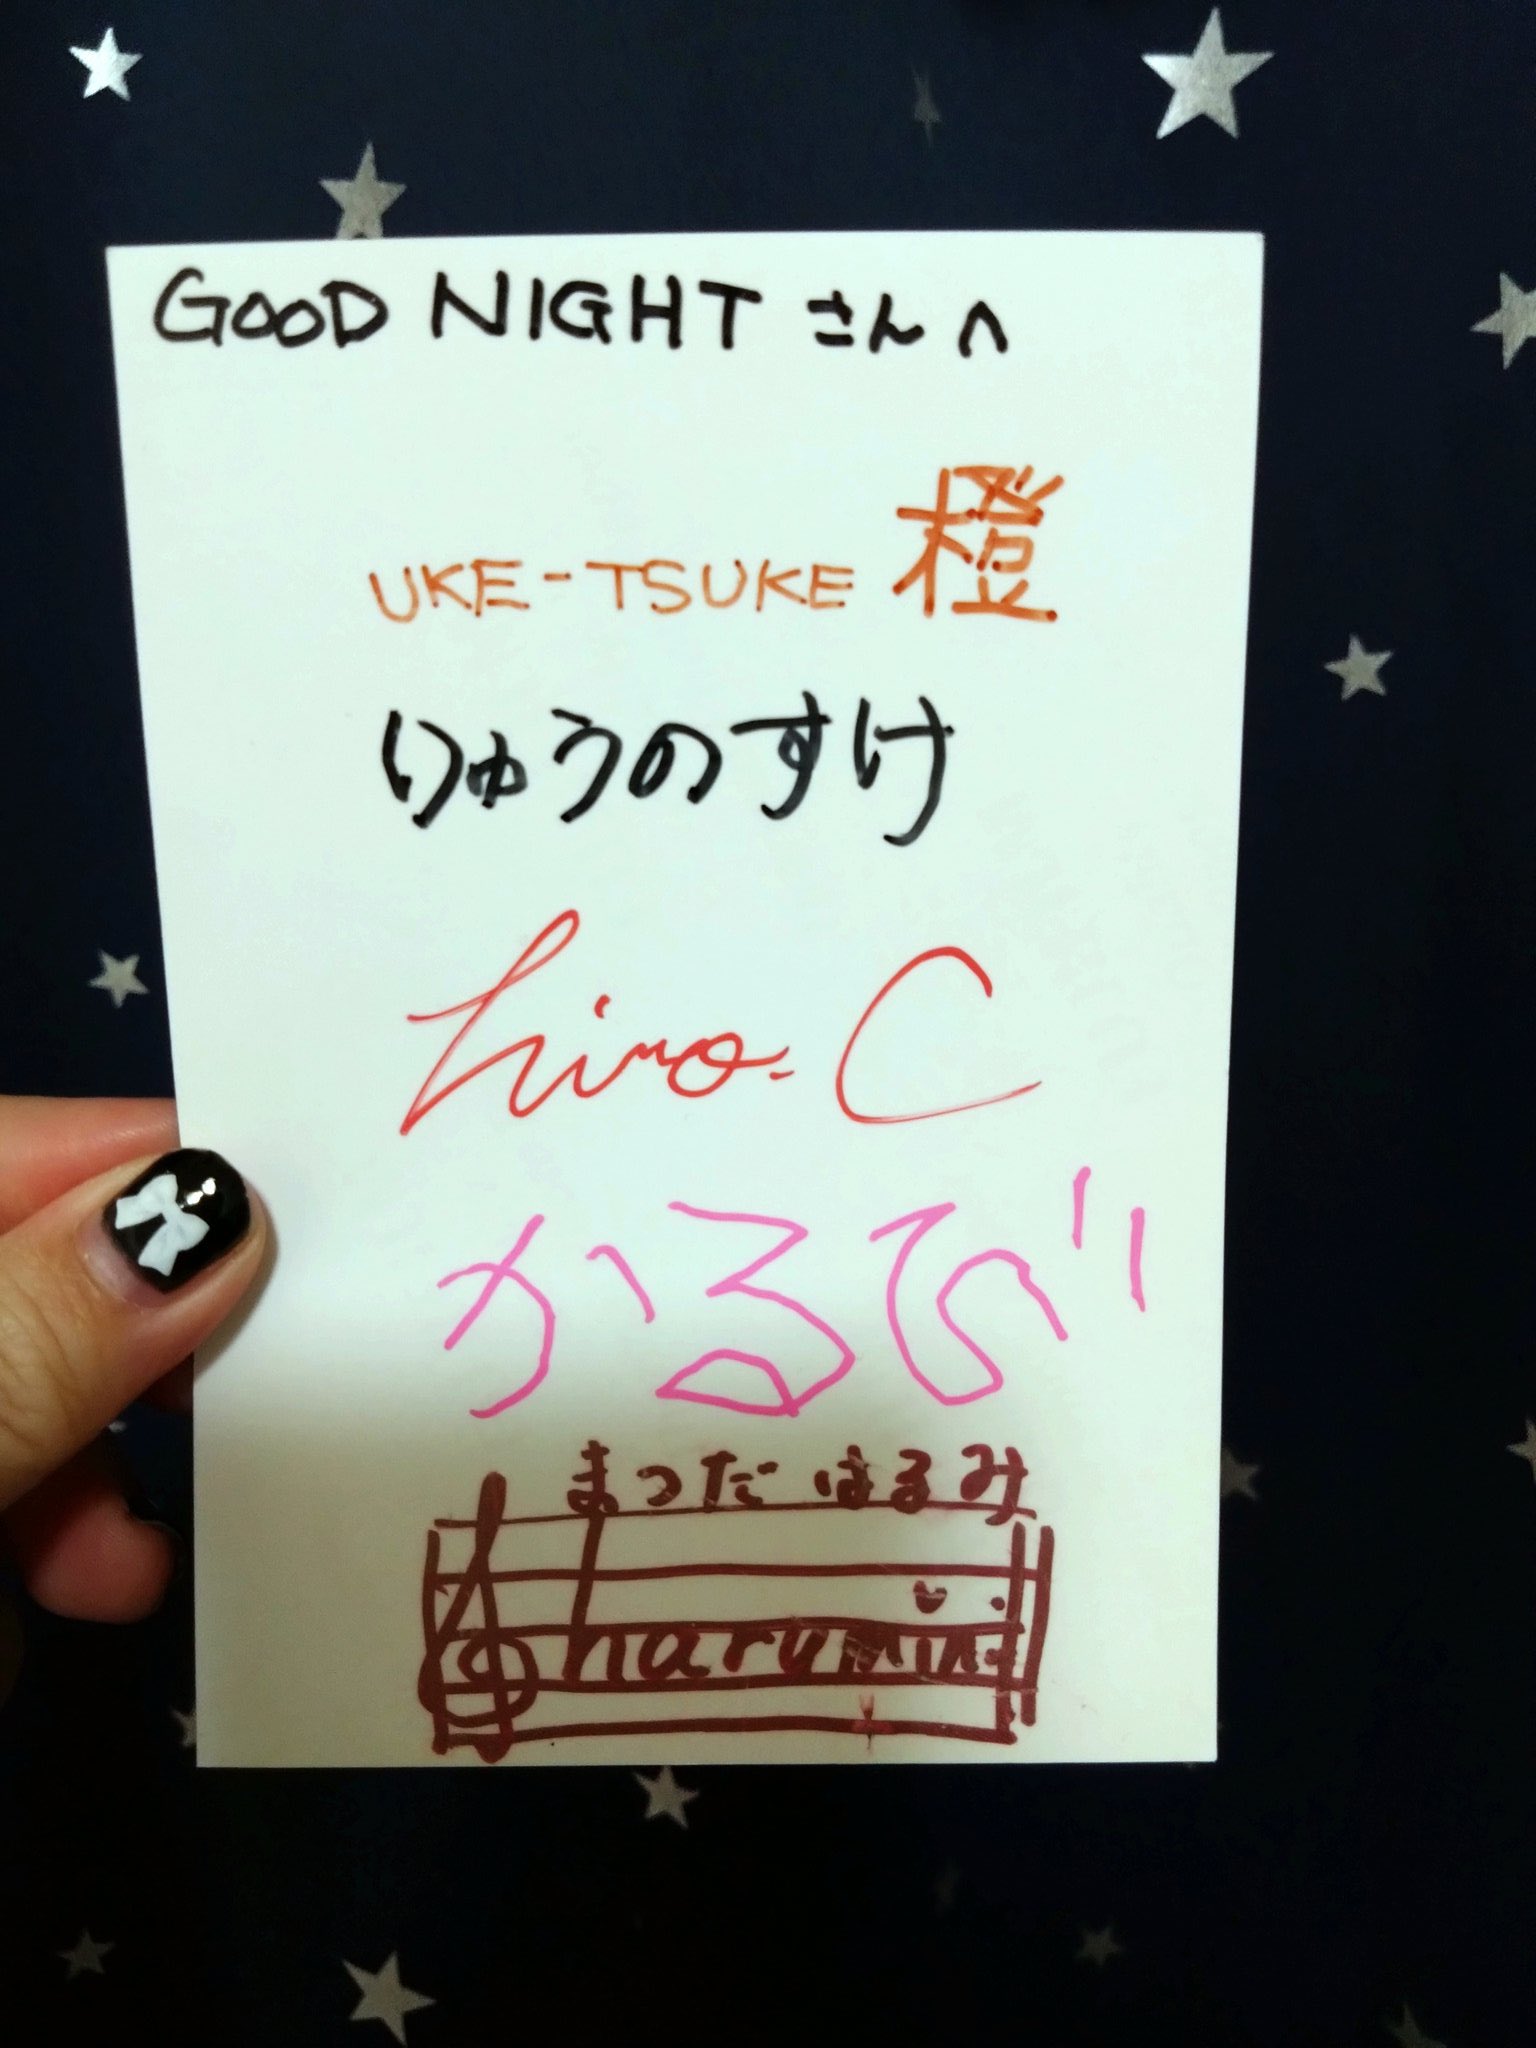 GOOD NIGHT さんへ
UKE-TSUKE 橙
りゅうのすけ
hiro-C
かるび
まつだ はるみ
harumin